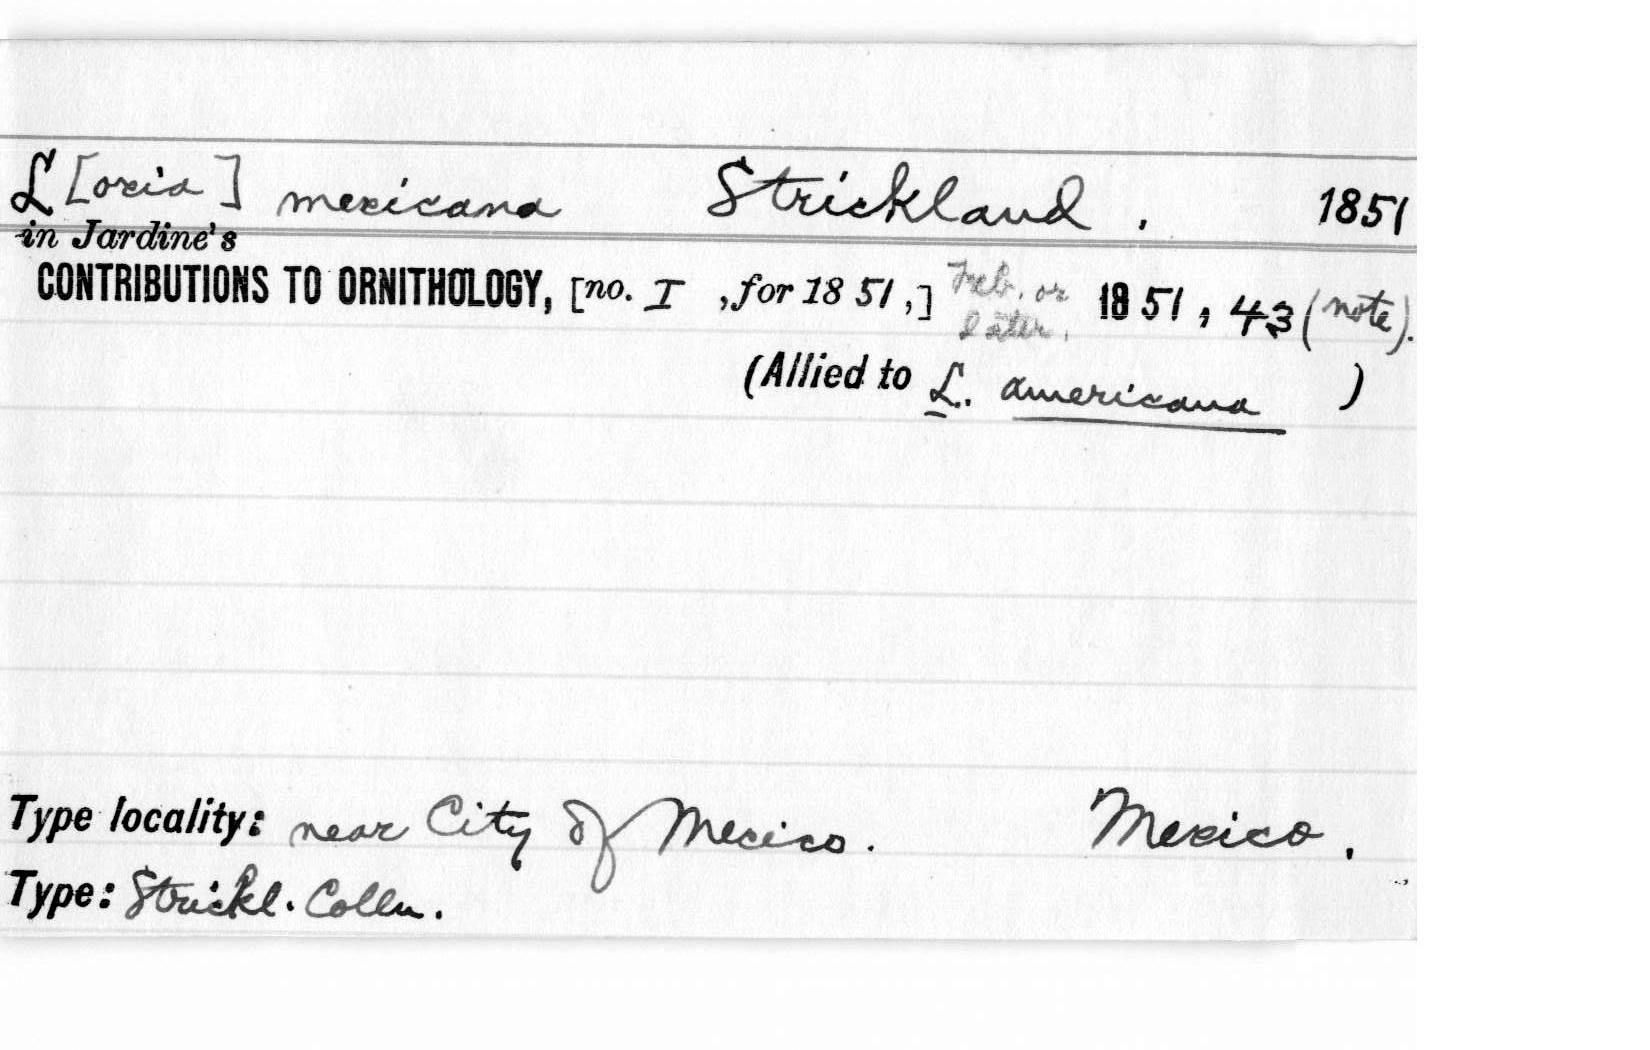 L[oxia] mexicana Strickland. 1851
in Jardine's
CONTRIBUTIONS TO ORNITHOLOGY, [no. I ,for 1851,] Feb. or later. 1851, 43 (note).
(Allied to L. americana )
Type locality: near City of Mexico. Mexico.
Type: Strickl. Colln.